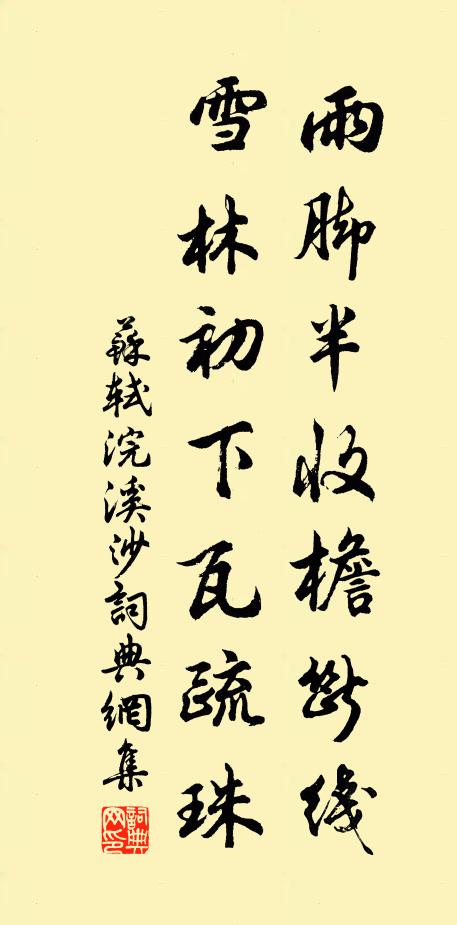 雨脚半收檐断线
雪林初下瓦疏珠
蘇軾浣溪沙詞典網集
詞典网印